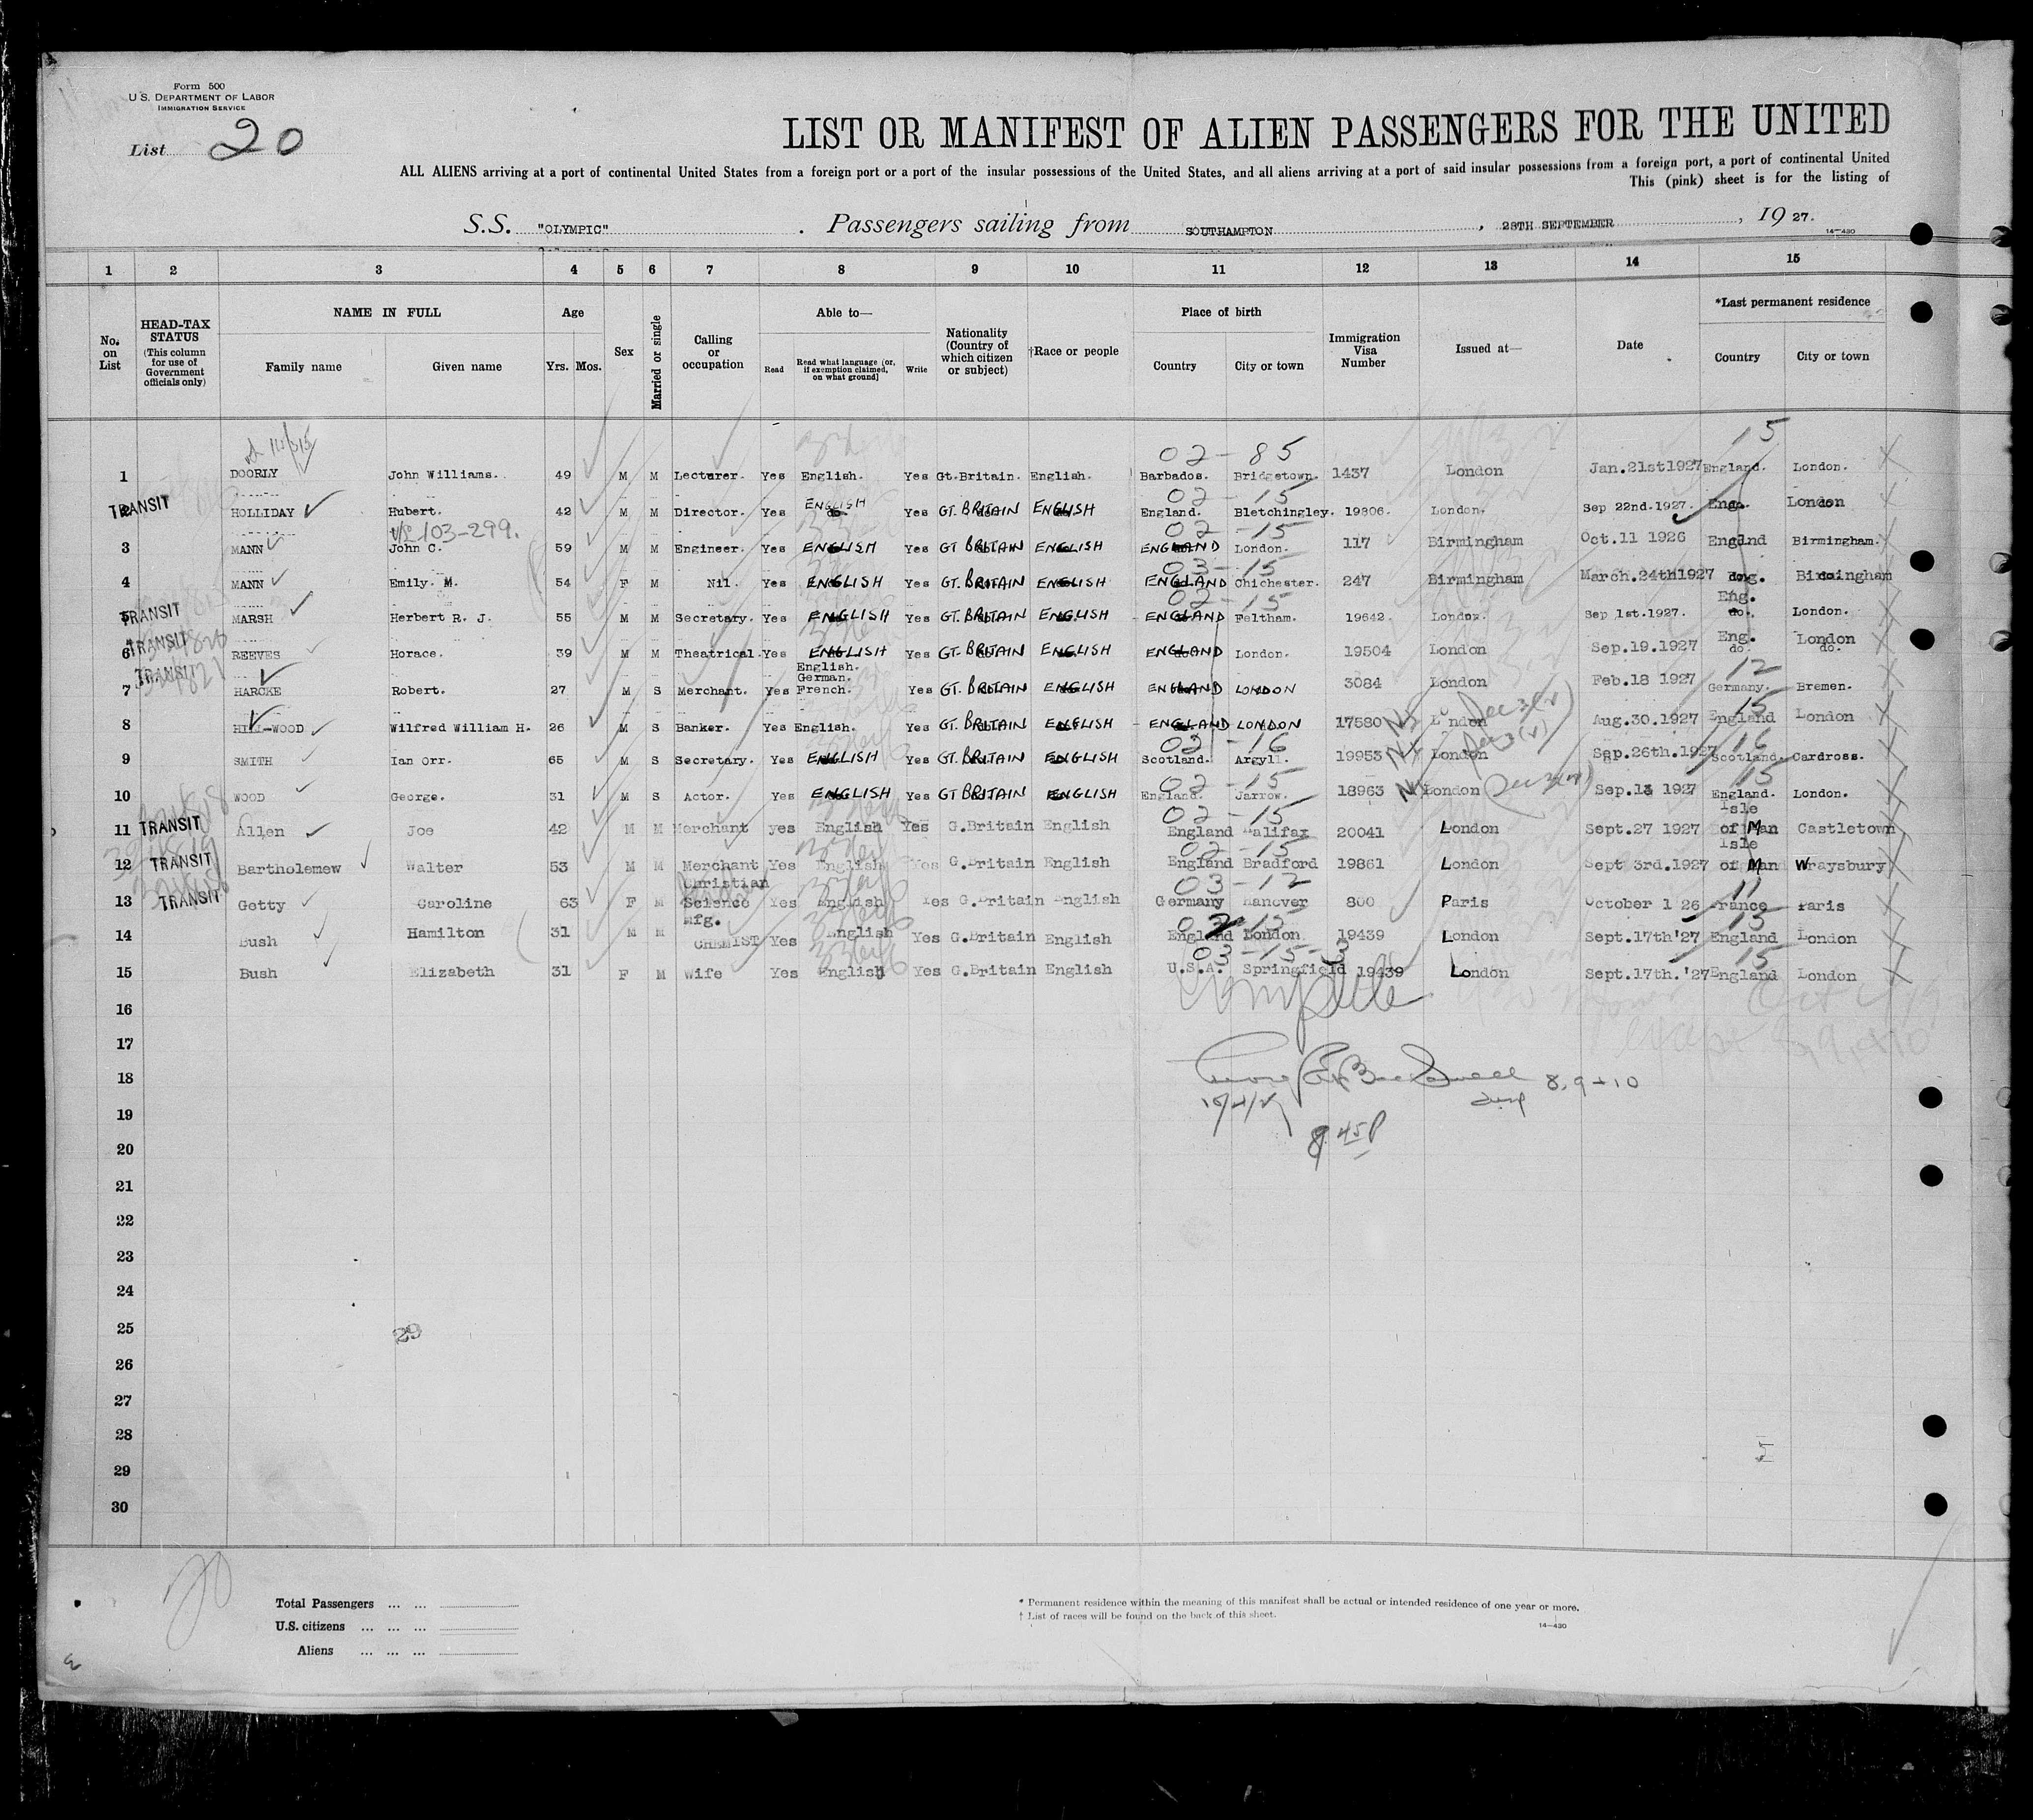 Form 500
U S. DEPARTMENT OF LABOR
IMMIGRATION SERVICE
List 20
LIST OR MANIFEST OF ALIEN PASSENGERS FOR THE UNITED
ALL ALIENS arriving at a port of continental United States from a foreign port or a port of the insular possessions of the United States, and all aliens arriving at a port of said insular possessions from a foreign port, a port of continental United
This (pink) sheet is for the listing of
S.S. "OLYMPIC" . Passengers sailing from SOUTHAMPTON , 28TH SEPTEMBER , 19 27.
14—430
1 2 3 4 5 6 7 8 9 10 11 12 13 14 15
No. on List
HEAD-TAX STATUS (This column for use of Government officials only)
NAME IN FULL Family name Given name
Age Yrs. Mos.
Sex
Married or single
Calling or occupation
Able to— Read Read what language [or, if exemption claimed, on what ground] Write
Nationality (Country of which citizen or subject)
†Race or people
Place of birth Country City or town
Immigration Visa Number
Issued at—
Date
*Last permanent residence Country City or town
02-85 15
1 DOORLY John Williams. 49 M M Lecturer. Yes English. Yes Gt.Britain. English. Barbados. Bridgetown. 1437 London Jan.21st1927 England. London.
02-15
TRANSIT 2 HOLLIDAY Hubert. 42 M M Director. Yes ENGLISH Yes GT. BRITAIN ENGLISH England. Bletchingley. 19806. London. Sep 22nd.1927. Eng. London
103-299. 02-15
3 MANN John C. 59 M M Engineer. Yes ENGLISH Yes GT BRITAIN ENGLISH ENGLAND London. 117 Birmingham Oct.11 1926 Englnd Birmingham.
03-15
4 MANN Emily. M. 54 F M Nil. Yes ENGLISH Yes GT. BRITAIN ENGLISH ENGLAND Chichester. 247 Birmingham March.24th1927 Eng. Birmingham
02-15
TRANSIT 5 MARSH Herbert R. J. 55 M M Secretary. Yes ENGLISH Yes GT. BRITAIN ENGLISH ENGLAND Feltham. 19642. London. Sep 1st.1927. Eng. do. London.
TRANSIT 6 REEVES Horace. 39 M M Theatrical. Yes ENGLISH Yes GT. BRITAIN ENGLISH ENGLAND London. 19504 London Sep.19.1927 Eng. do. London do.
12
TRANSIT 7 HARCKE Robert. 27 M S Merchant. Yes English. German. French. Yes GT. BRITAIN ENGLISH ENGLAND LONDON 3084 London Feb.18 1927 Germany. Bremen.
15
8 HILL-WOOD Wilfred William H. 26 M S Banker. Yes English. Yes GT. BRITAIN ENGLISH ENGLAND LONDON 17580 London Aug.30.1927 England London
02-16 16
9 SMITH Ian Orr. 65 M S Secretary. Yes ENGLISH Yes GT. BRITAIN ENGLISH Scotland. Argyll. 19953 NY London Sep.26th.1927 Scotland. Cardross.
02-15 15
10 WOOD George. 31 M S Actor. Yes ENGLISH Yes GT BRITAIN ENGLISH England. Jarrow. 18963 London Sep.13 1927 England. London.
02-15
11 TRANSIT Allen Joe 42 M M Merchant yes English Yes G.Britain English England Halifax 20041 London Sept.27 1927 Isle of Man Castletown
02-15
12 TRANSIT Bartholemew Walter 53 M M Merchant Yes English Yes G.Britain English England Bradford 19861 London Sept 3rd.1927 Isle of Man Wraysbury
03-12 11
13 TRANSIT Getty Caroline 63 F M Christian Science Yes English Yes G.Britain English Germany Hanover 800 Paris October 1 26 France Paris
02-15 15
14 Bush Hamilton 31 M M Mfg. CHEMIST Yes English Yes G.Britain English England London 19439 London Sept.17th'27 England London
03-15-3 15
15 Bush Elizabeth 31 F M Wife Yes English Yes G.Britain English U.S.A. Springfield 19439 London Sept.17th.'27 England London
16
17
18 8, 9 + 10
19
8 45 P
20
21
22
23
24
25 29
26
27
28
29
30
20
Total Passengers ... ...
U.S. citizens ... ... ...
Aliens ... ... ...
* Permanent residence within the meaning of this manifest shall be actual or intended residence of one year or more.
† List of races will be found on the back of this sheet.
14—430